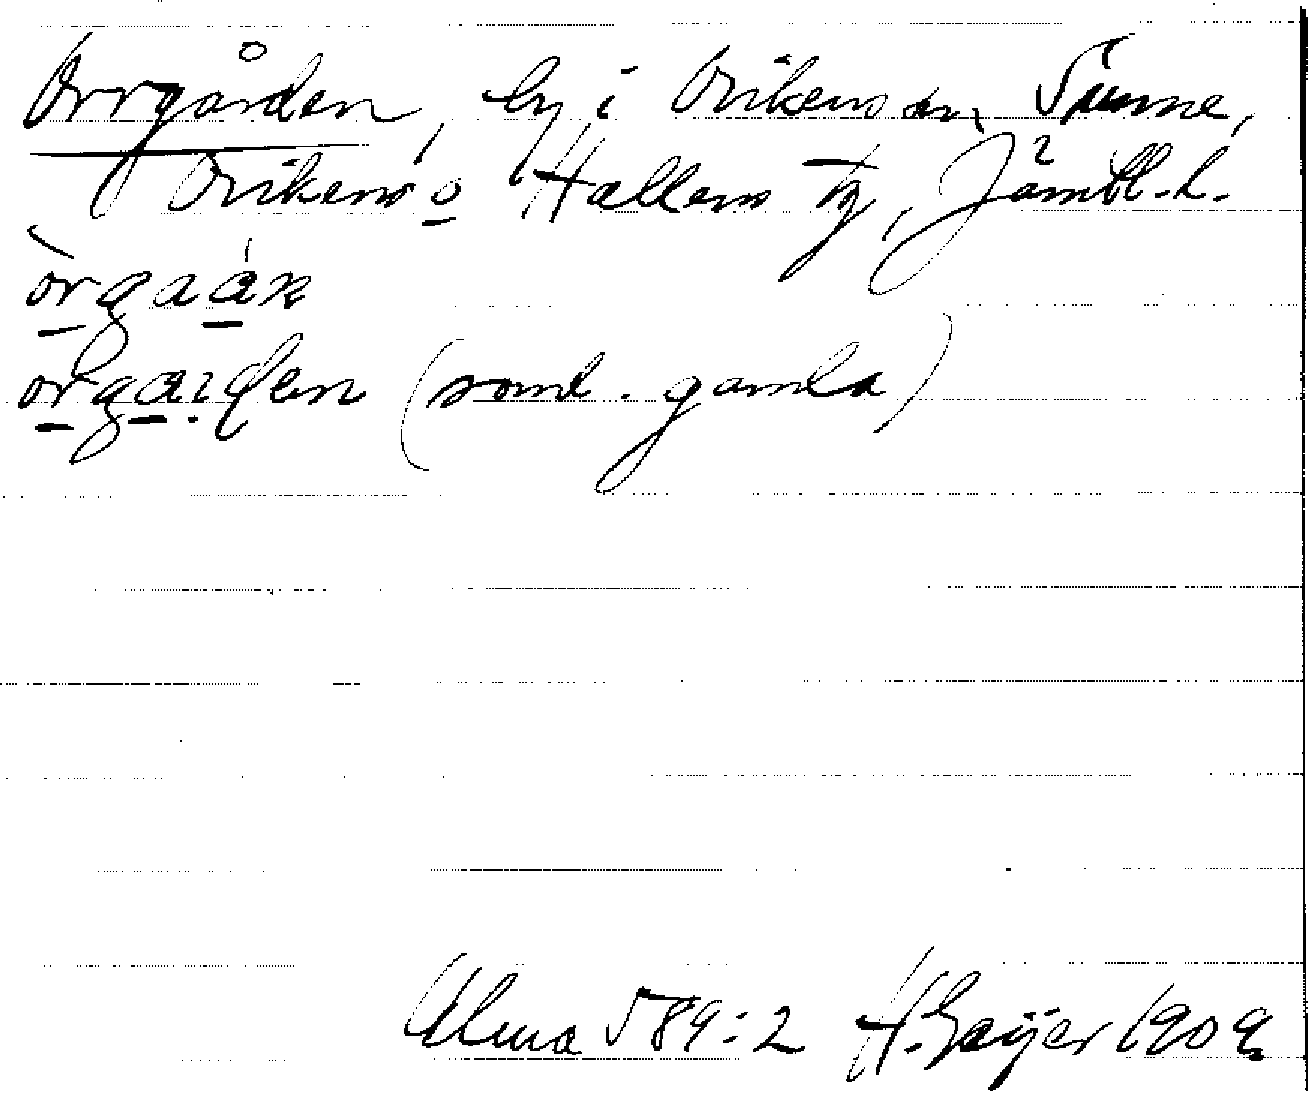 Orrgården, by i Ovikens sn, Sunne,
Ovikens o Hallens tg, Jämtl. l.
òrgaán
orgaɪɖen (soml. gamla)
Alma 589:2 H. Geijer 1909